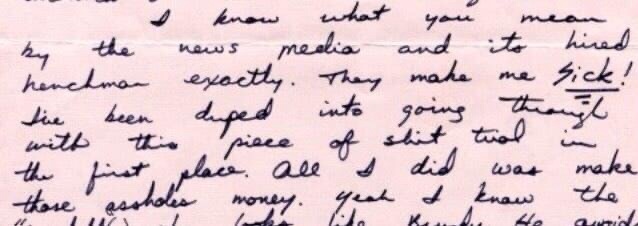 I know what you mean
by the news media and its hired
henchman exactly. They make me Sick!
I've been duped into going through
with this piece of shit trial in
the first place. All I did was make
those assholes money. Yeah I know the
looks like He